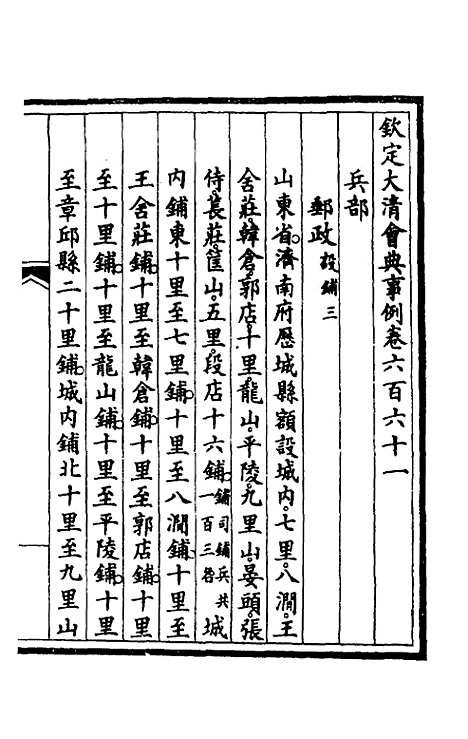 欽定大清會典事例卷六百六十一
兵部
郵政設鋪三
山東省。濟南府歷城縣額設城內。七里。八澗。王
舍莊。韓倉。郭店。十里。龍山。平陵。九里山。晏頭。張
侍。萇莊。筐山。五里。段店十六鋪。鋪司鋪兵共一百三名城
內鋪東十里至七里鋪。十里至八澗鋪。十里至
王舍莊鋪。十里至韓倉鋪。十里至郭店鋪。十里
至十里鋪。十里至龍山鋪。十里至平陵鋪。十里
至章邱縣二十里鋪。城內鋪北十里至九里山